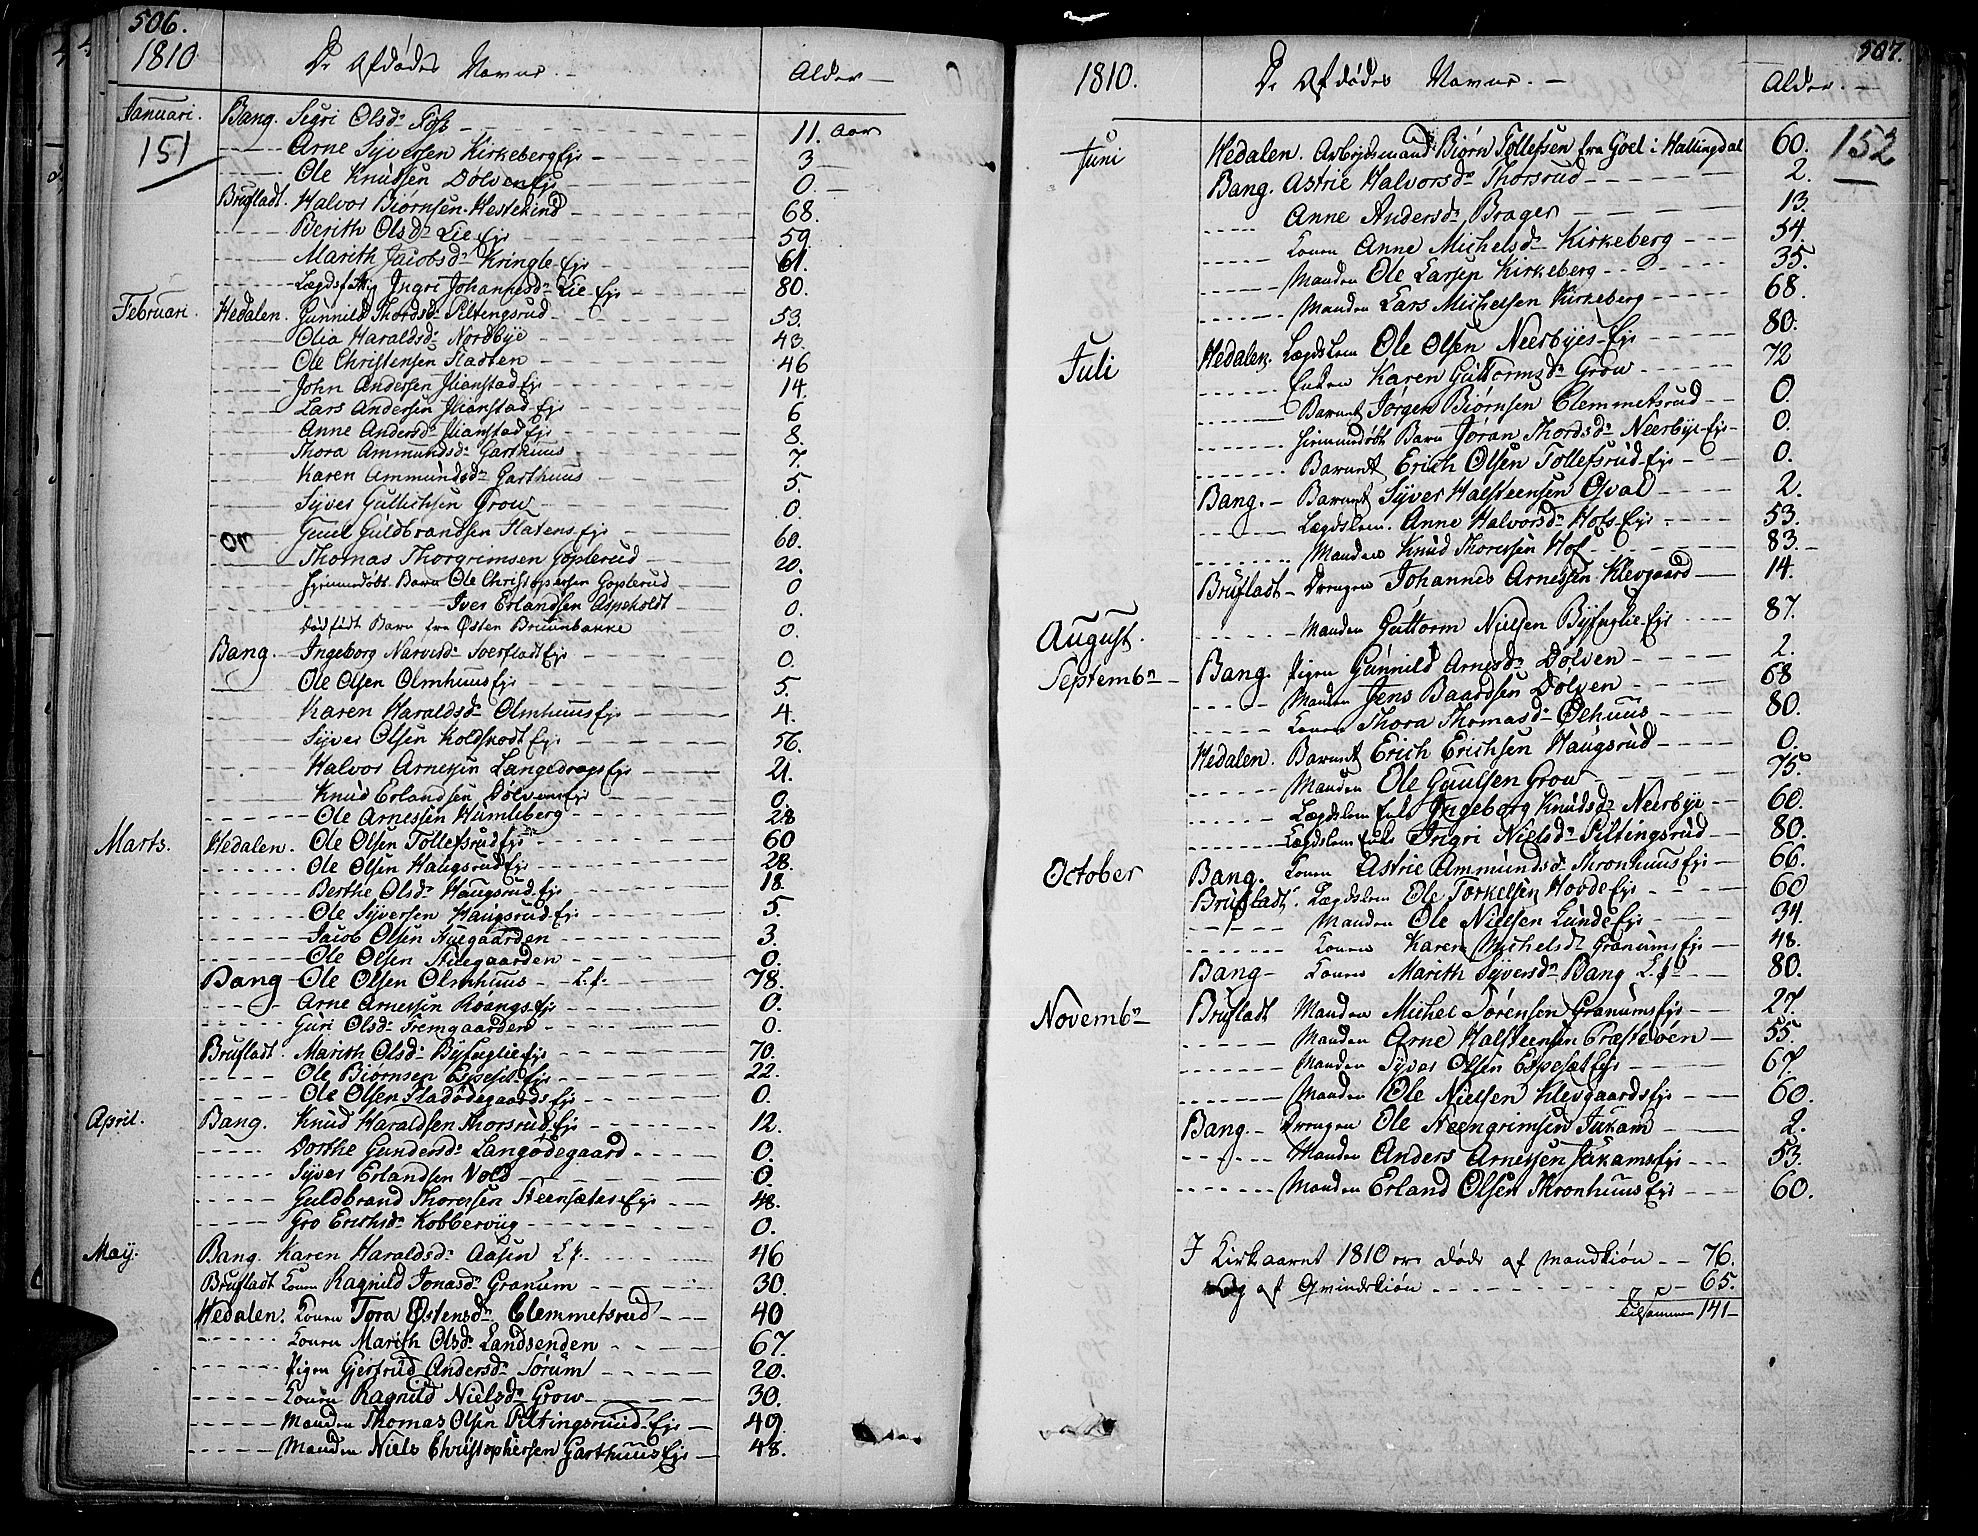 506.
1810 De Afdødes Navne. Alder
Januari. Bang. Segri Olsdr Foss 11. Aar
151 Arne Syversen Kirkeberg Eje 3
Ole Knudsen Dølven Eje 0.
Brufladt. Halvor Biørnsen Hestekind 68.
Berith Olsdr Lie Eje 59
Marith Jacobsdr Kringle Eje 61.
Ingri Johannesdr Lie Eje 80.
Februari. Hedalen. Gunnild Thordsdr Piltengsrud 53.
Olia Haraldsdr Nordbye 43.
Ole Christensen Fladten 46
John Andersen Jlianstad Eje 14.
Lars Andersen Jlianstad Eje 6
Anne Andersdr Jlianstad Eje 8.
Thora Ammundsdr Garthuus 7.
Karen Ammundsdr Garthuus 5.
Syver Gullichsen Grow 0.
Guldbrandsen Flatens Eje 60.
Thomas Thorgrimsen Goplerud 20.
Hjemmedøbt Barn Ole Christophersen Goplerud 0
Iver Erlandsen Aspeholdt 0.
Dødfødt Barn fra Østen Bruunbakke 0.
Bang. Ingeborg Narvesdr Sverfladt Eje 0.
Ole Olsen Olmhuus Eje 5.
Karen Haraldsdr Olmhuus Eje 4.
Syver Olsen Koldsrodt Eje 56.
Halvor Arnesen Langedrags Eje 21.
Knud Erlandsen Dølven Eje 0.
Ole Arnessen Humleberg 28
Marts. Hedalen. Ole Olsen Tollefsrud Eje 60
Ole Olsen Haugsrud Eje 28.
Berthe Olsdr Haugsrud Eje 18
Ole Syversen Haugsrud Eje 5.
Jacob Olsen Huegaarden 3.
Ole Olsen Huegaarden 0.
Bang Ole Olsen Olmhuus L.f. 78.
Arne Arnessen Roangs Eje 0.
Guri Olsdr Fremgaarden 0.
Brufladt. Marith Olsdr Byfuglie Eje 70.
Ole Biørnsen Espeset Eje 22.
Ole Olsen Fladødegaards Eje 0.
April. Bang. Knud Haraldsen Thorsrud Eje 12.
Dorthe Gundersdr Langødegaard 0.
Syver Erlandsen Vold 0.
Guldbrand Thoresen Steensæter Eje 48.
Gro Erichsdr Kobbervüg 0.
May. Bang. Karen Haraldsdr Aasen L.f. 46
Brufladt Konen Ragnild Jonasdr Granum 30.
Hedalen. Konen Tora Østensdr Clemmetsrud 40
Konen Marith Olsdr Landsenden 67.
Pigen Gjertrud Andersdr Sørum 20.
Konen Ragnild Nielsdr Grow 30.
Manden Thomas Olsen Piltingsruud Eje 49
Manden Niels Christophersen Garthuus Eje 48.
507.
1810. De Afdødes Navne. Alder.
Juni Hedalen. Arbejdsmand Biørn Tollefsen fra Goel i Hallingdal 60. 152
Bang. Astrie Halvorsdr Thorsrud 2.
Anne Andersdr Brager 13.
Konen Anne Michelsdr Kirkeberg 54.
Manden Ole Larsen Kirkeberg 35.
Manden Lars Michelsen Kirkeberg 68.
Juli Hedalen. Lægdslem Ole Olsen Neerbyes Eje 80.
Enken Karen Guttormsdr Grow 72
Barnet Jørgen Biørnsen Clemmetsrud 0.
Hiemmedøbt Barn Jøran Thordsdr Neerbye Eje 0.
Barnet Erich Olsen Tollefsrud Eje 0.
Bang. Barnet Syver Halsteensen Osval 2.
Lægdslem. Anne Halvorsdr Hofs Eje 53.
Manden Knud Thoresen Hof 83.
Brufladt Drengen Johannes Arnessen Klevgaard 14.
August. Manden Guttorm Nielsen Byfuglie Eje 87.
Septembr Bang. Pigen Gunnild Arnesdr Dolven 2.
Manden Jens Baardsen Dolven 68
Konen Thora Thomasdr Olhuus 80.
Hedalen. Barnet Erich Erichsen Haugsrud 0.
Manden Ole Guulsen Grow 75.
Lægdslem Enke Ingeborg Knudsdr Neerbye 60.
Lægdslem Enke Ingri Nielsdr Piltingsrud 80.
October Bang. Konen Astrie Ammundsdr Skronhuus Eje 66.
Brufladt. Lægdslem Ole Torkelsen Hovde Eje 60
Manden Ole Nielsen Lunde Eje 34.
Konen Karen Michelsdr Granums Eje 48.
Bang Konen Marith Syversdr Bang L.f. 80.
Novembr Brufladt Manden Michel Sørensen Granums Eje 27.
Manden Arne Halsteensen Præsthøen 55.
Manden Syver Olsen Espeset Eje 67.
Manden Ole Nielsen Klevgaards Eje 60.
Bang. Drengen Ole Steengrimsen Jukam 2.
Manden Anders Arnessen Jukams Eje 53.
Manden Erland Olsen Skronhuus Eje 60.
I Kirkeaaret 1810 er døde af Mandkiøn 76.
og af Qvindekiøn 65.
tilsammen 141